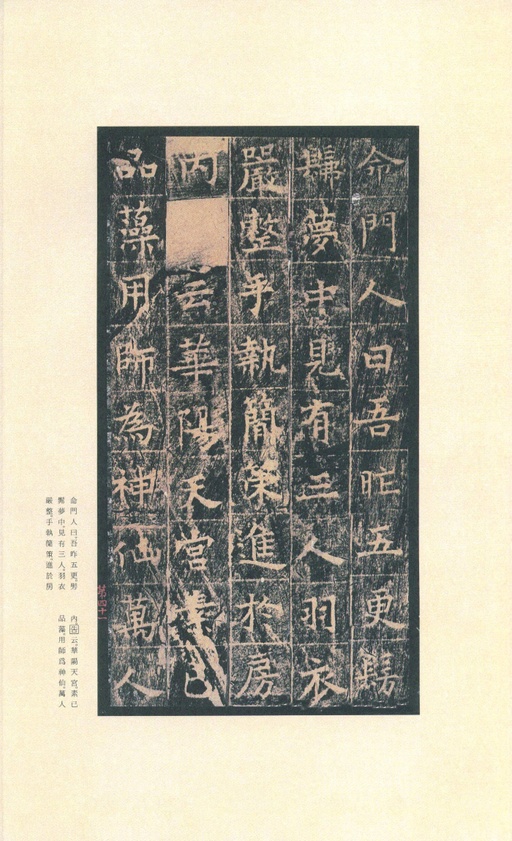 命門人曰吾昨五更髣
髴夢中見有三人羽衣
嚴整手執簡策進於房
内云華陽天宮素已
品藻用師為神仙萬人
第四十
命門人曰吾昨五更髣
髴夢中見有三人羽衣
嚴整手執簡策進於房
内云華陽天宮素已
品藻用師爲神仙萬人